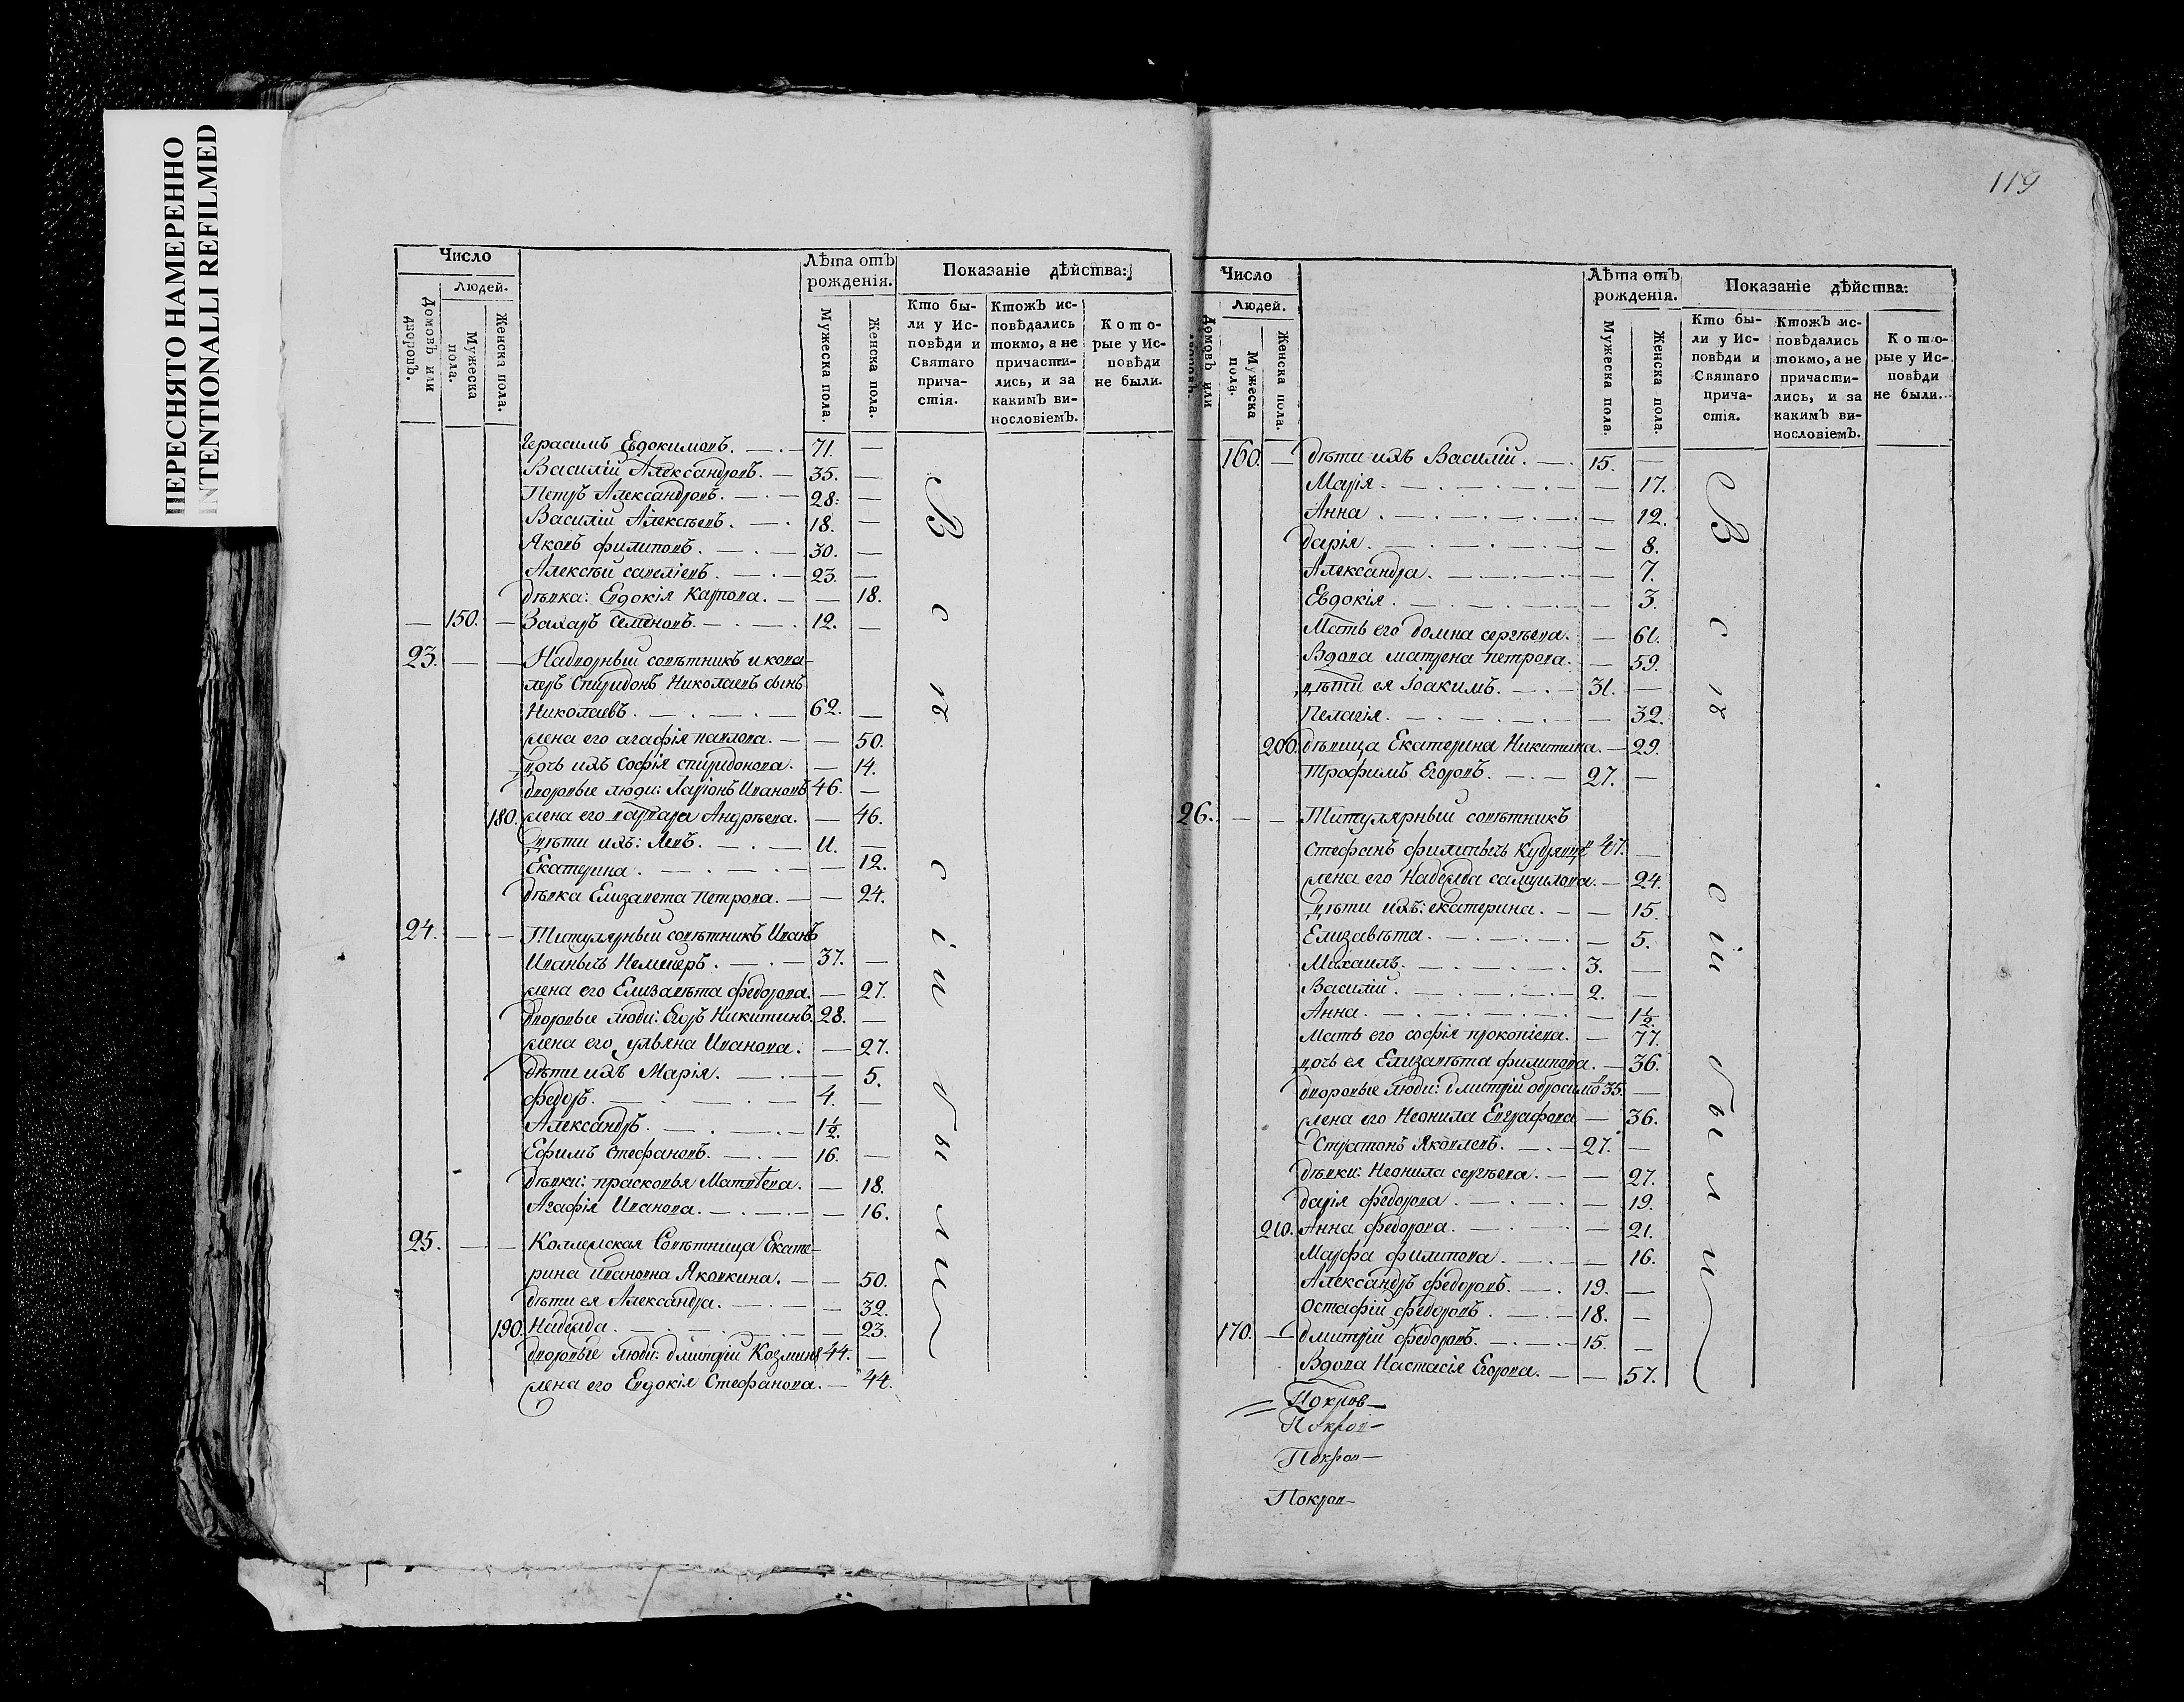 ПЕРЕСНЯТО НАМЕРЕННО
INTENTIONALLI REFILMED
Число
Людей.
Домовъ или дворовъ.
Мужеска пола.
Женска пола.
Лѣта отъ рожденія.
Мужеска пола.
Женска пола.
Показаніе дѣйства:
Кто были у Исповѣди и Святаго причастія.
Ктожъ исповѣдались токмо, а не причастились, и за какимъ винословіемъ.
Которые у Исповѣди не были.
Герасимъ Евдокимовъ. 71.
Василій Александровъ. 35.
Петръ Александровъ. 28.
Василій Алексѣевъ. 18.
Яковъ Филиповъ. 30.
Алексѣй Савеліевъ. 23.
Дѣвка: Евдокія Карпова. 18.
150. Захаръ Семеновъ. 12.
23. Надворный совѣтникъ и кова-
леръ Спиридонъ Николаевъ сынъ
Николаевъ. 62.
жена его Агафія Павлова. 50.
дочь ихъ Софія Спиридонова. 14.
дворовые люди: Ларіонъ Ивановъ 46.
180. жена его Варвара Андрѣева. 46.
Дѣти ихъ: Левъ. 11.
Екатерина. 12.
Дѣвка Елизавета Петрова. 24.
24. Титулярный совѣтникъ Иванъ
Иванычь Немчеръ. 37.
жена его Елизавѣта Федорова. 27.
Дворовые люди: Егоръ Никитинъ. 28.
жена его Ульяна Иванова. 27.
Дѣти ихъ Марія. 5.
Федоръ. 4.
Александръ. 1½.
Ефимъ Стефановъ. 16.
Дѣвки: Прасковья Матвѣева. 18.
Агафія Иванова. 16.
25. Коллежская Совѣтница Екате-
рина Ивановна Яковкина. 50.
Дѣти ея Александра. 32.
190. Надежда. 23.
Дворовые люди: Дмитрій Козминъ 44.
жена его Евдокія Стефанова. 44.
Всѣ сіи были
119
Число
Людей.
Домовъ или дворовъ.
Мужеска пола.
Женска пола.
Лѣта отъ рожденія.
Мужеска пола.
Женска пола.
Показаніе дѣйства:
Кто были у Исповѣди и Святаго причастія.
Ктожъ исповѣдались токмо, а не причастились, и за какимъ винословіемъ.
Которые у Исповѣди не были.
160. Дѣти ихъ Василій. 15.
Марія. 17.
Анна. 12.
Дарія. 8.
Александра. 7.
Евдокія. 3.
Мать его Домна Сергѣева. 61.
Вдова Матрена Петрова. 59.
дѣти ея Іоакимъ. 31.
Пелагія. 32.
200. Дѣвица Екатерина Никитина. 29.
Трофимъ Егоровъ. 27.
26. Титулярный совѣтникъ
Стефанъ Филипычь 47.
жена его Надежда Самуилова. 24.
Дѣти ихъ: Екатерина. 15.
Елизавѣта. 5.
Михаилъ. 3.
Василій. 2.
Анна. 1½
Мать его Софія Прокопіева. 77.
дочь ея Елизавѣта Филипова. 36.
дворовые люди: Дмитрій 35.
жена его Неонила Евграфова 36.
Стратонъ Яковлевъ. 27.
Дѣвки: Неонила Сергѣева. 27.
Дарія Федорова. 19.
210. Анна Федорова. 21.
Марфа Филипова. 16.
Александръ Федоровъ. 19.
Остафій Федоровъ. 18.
170. Дмитрій Федоровъ. 15.
Вдова Настасія Егорова. 57.
Всѣ сіи были
Покров-
Покров-
Покров-
Покров-